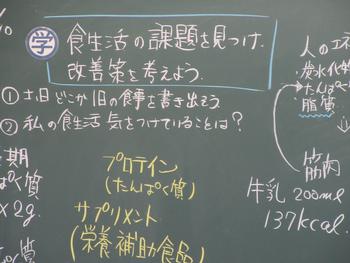 %
学 食生活の課題を見つけ、
改善策を考えよう。
① 土日どこか1日の食事を書き出そう
② 私の食生活 気をつけていることは？
人のエネ
炭水化物
たんぱく
脂質
筋肉
牛乳 200ml
137kcal.
期
ぱく質
×2g.
ぱく質
プロテイン
(たんぱく質)
サプリメント
(栄養補助食品)